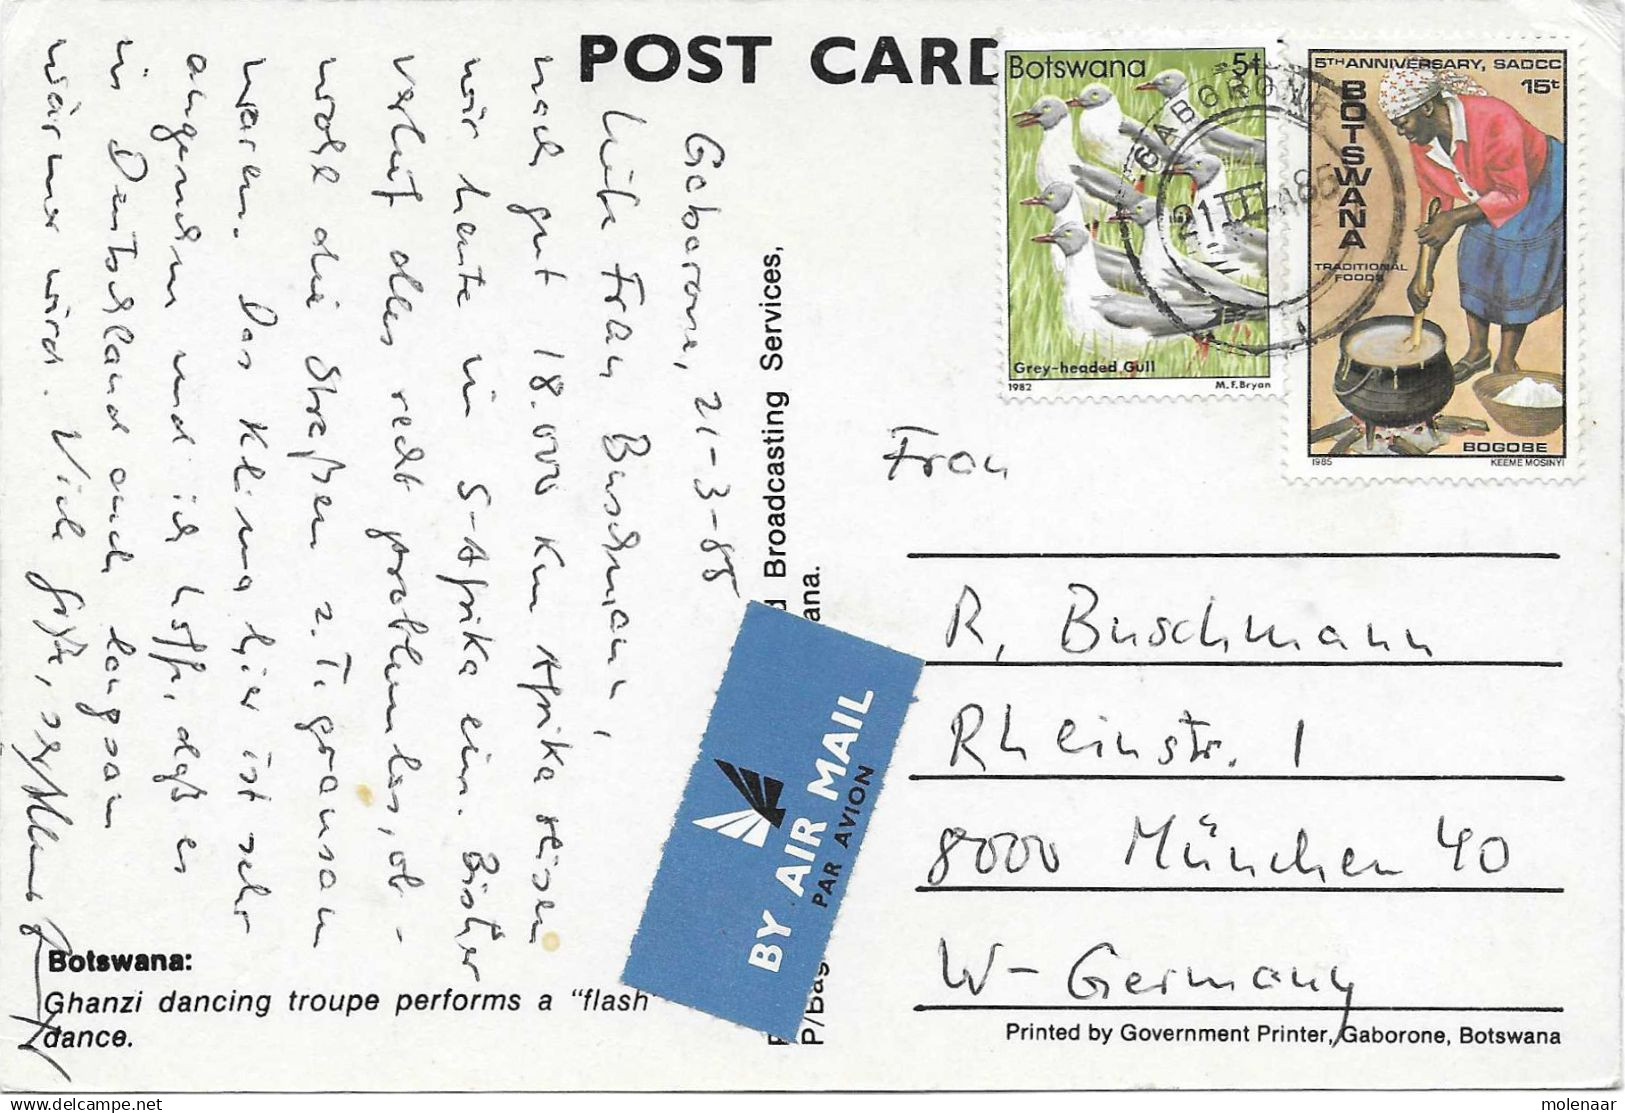 POST CARD
Botswana 5t
Grey-headed Gull
1982 M.F.Bryan
5TH ANNIVERSARY, SADCC
15t
BOTSWANA
TRADITIONAL
FOODS
BOGOBE
1985 KEEME MOSINYI
GABORONE
21 III 1985
Gaborone, 21-3-85
Liebe Frau Buschmann,
nach gut 18.000 Km Afrika reisen
wir heute in S-Afrika ein. Bisher
verlief alles recht problemlos, ob-
wohl die Straßen z.T. grausam
waren. Das Klima hier ist sehr
angenehm und ich hoffe, daß es
in Deutschland auch langsam
wärmer wird. Viele Grüße,
Frau
R. Buschmann
Rheinstr. 1
8000 München 40
W-Germany
d Broadcasting Services,
P/Bag
ana.
BY AIR MAIL
PAR AVION
Botswana:
Ghanzi dancing troupe performs a "flash
dance.
Printed by Government Printer, Gaborone, Botswana
molenaar